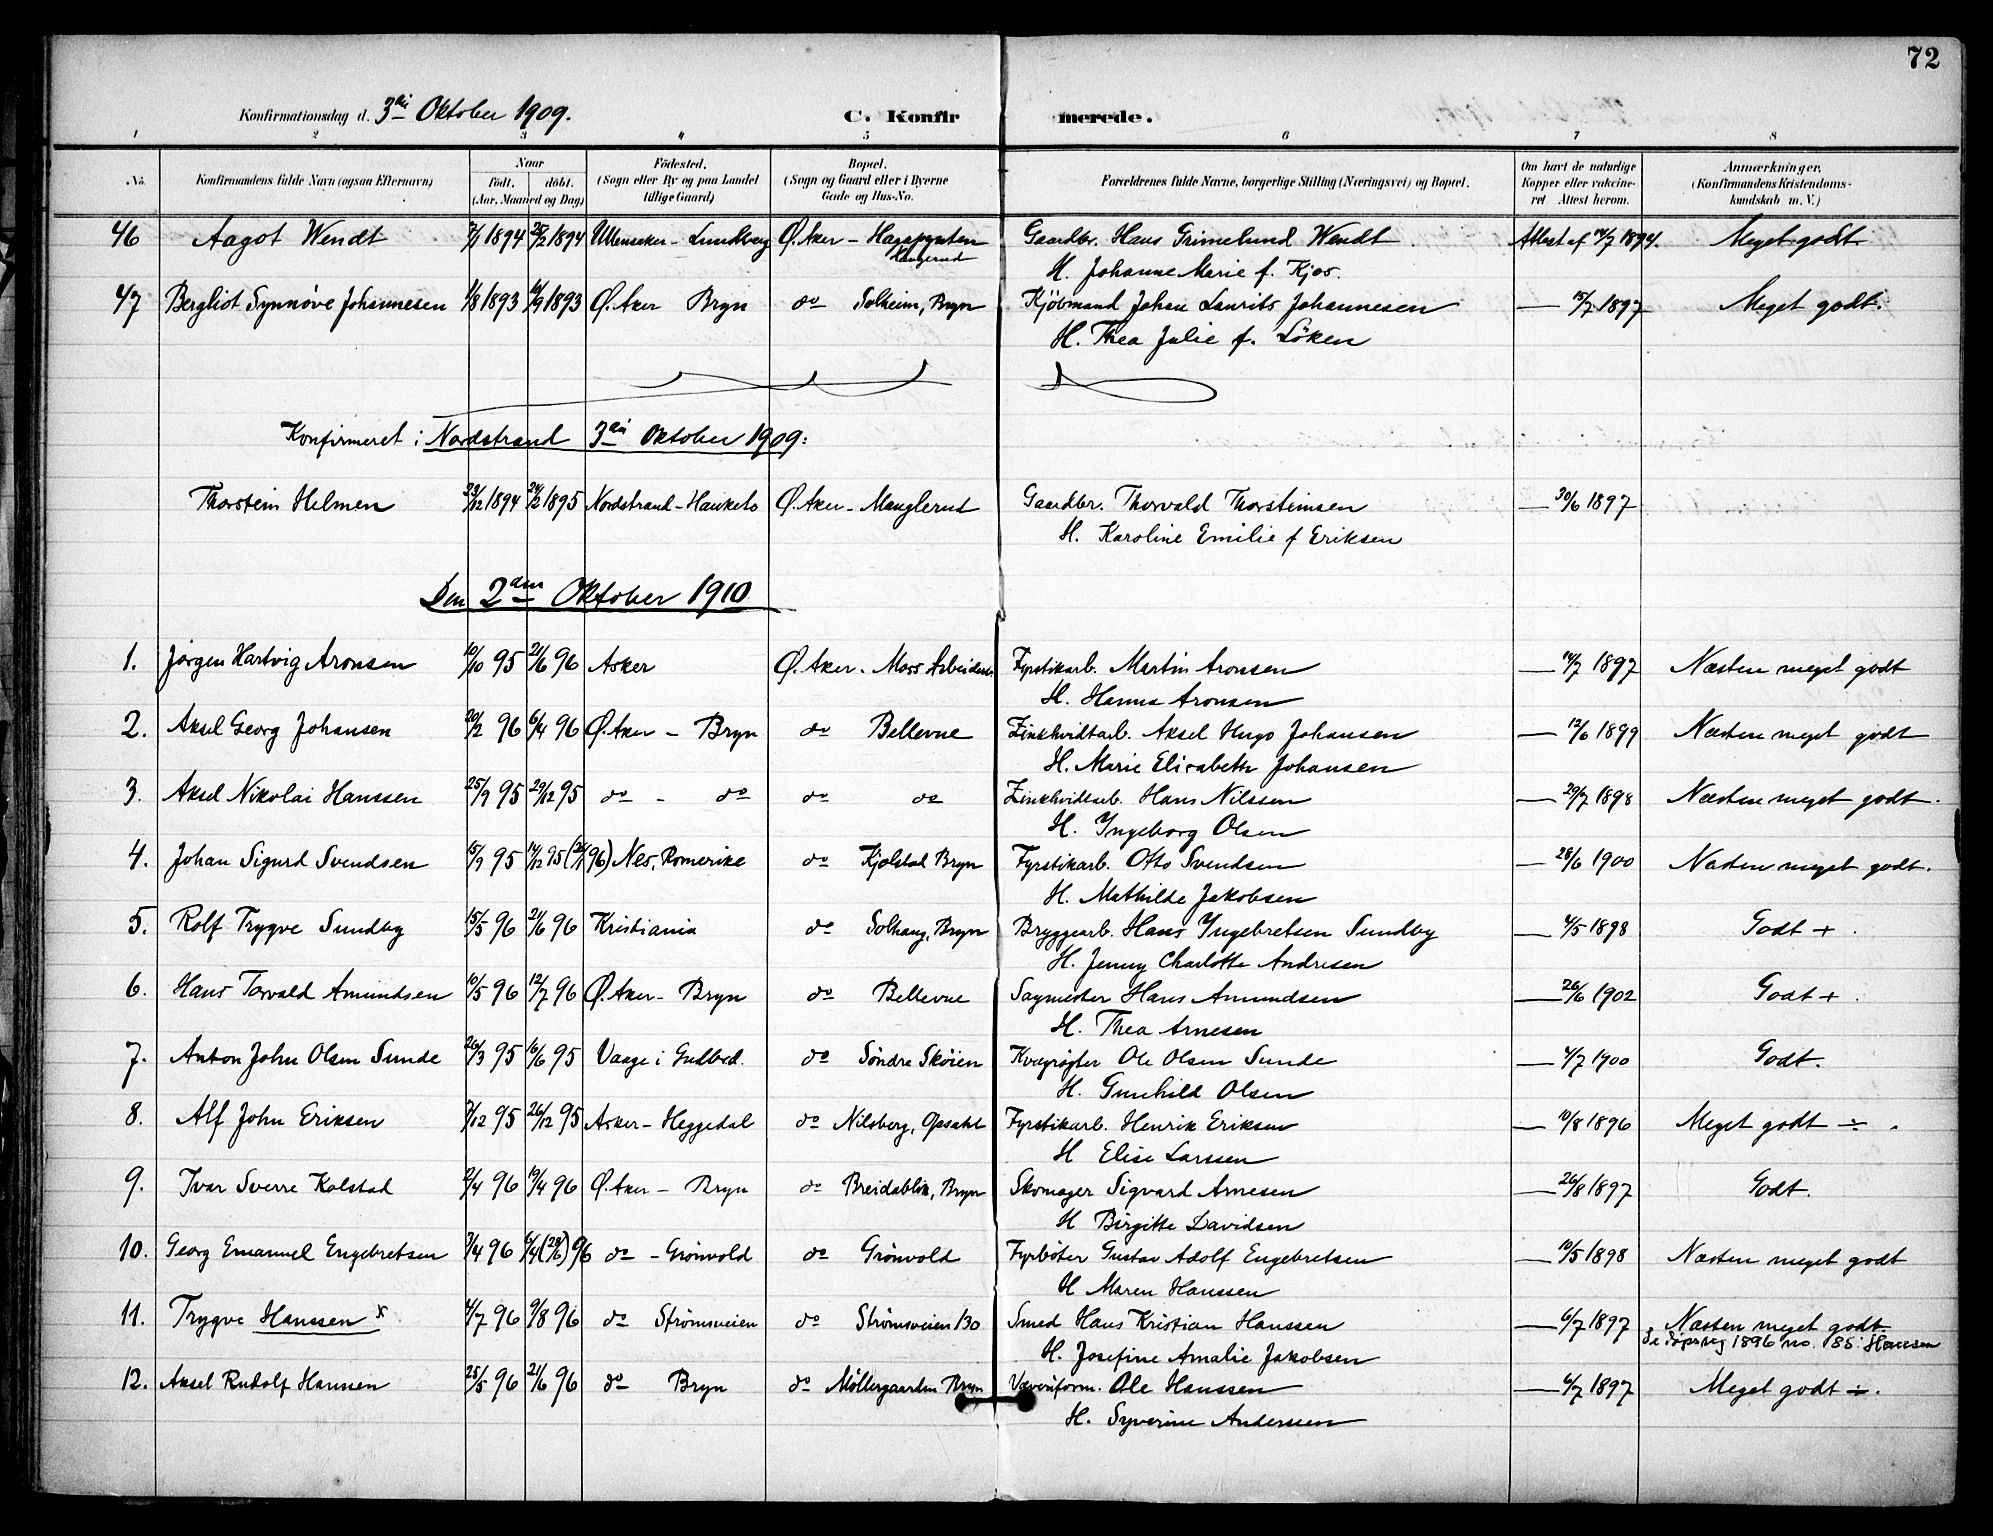 72
Konfirmationsdag d. 3die Oktober 1909. C. Konfirmerede.
1 2 3 4 5 6 7 8
No. Konfirmandens fulde Navn (ogsaa Efternavn) Naar födt. döbt. (Aar, Maaned og Dag) Födested. (Sogn eller By og paa Landet tillige Gaard) Bopæl. (Sogn og Gaard eller i Byerne Gade og Hus-No. Forældrenes fulde Navne, borgerlige Stilling (Næringsvei) og Bopæl. Om havt de naturlige Kopper eller vakcineret Attest herom. Anmærkninger. (Konfirmandens Kristendomskundskab m. V.)
46 Aagot Wendt 1894 28/2 1894 Ullensaker - Lundberg Ø. Aker - Gaardbr. Hans Grimelund Wendt Attest af 14/7 1894. Meget godt
H. Johanne Marie f. Kjos.
47 Bergliot Synnøve Johannesen 1/8 1893 1893 Ø. Aker Bryn do Solheim, Bryn Kjöbmand Johan Laurits Johannesen — 15/7 1897 Meget godt.
H. Thea Julie f. Löken
Konfirmeret i Nordstrand 3die Oktober 1909:
Thorstein Helmen 23/12 1894 24/2 1895 Nordstrand - Hauketo Ø. Aker - Manglerud Gaardbr. Thorvald Thorsteinsen — 30/6 1897
H. Karoline Emilie f Eriksen
Den 2den Oktober 1910
1. Jørgen Hartvig Aronsen 10/10 95 21/6 96 Asker Ø. Aker - Moss Arbeiderb. Fyrstikarb. Martin Aronsen — 14/7 1897 Næsten meget godt
H. Hanna Aronsen
2. Aksel Georg Johansen 20/2 96 6/4 96 Ø. Aker - Bryn do Bellevue Zinkhvidtarb. Aksel Hugo Johansen — 12/6 1899 Næsten meget godt
H. Marie Elisabeth Johansen
3. Aksel Nikolai Hanssen 25/9 95 29/12 95 do - do do do Zinkhvidtarb. Hans Nilssen — 29/7 1898 Næsten meget godt.
H. Ingeborg Olsen
4. Johan Sigurd Svendsen 15/9 95 14/12 95 (26/1 96) Nes, Romerike do Kjølstad Bryn Fyrstikarb. Otto Svendsen — 28/6 1900 Næsten meget godt.
H. Mathilde Jakobsen
5. Rolf Trygve Sundby 15/5 96 21/6 96 Kristiania do Solhaug, Bryn Bryggearb. Hans Ingebretsen Sundby — 4/5 1898 Godt +
H. Jenny Charlotte Andresen
6. Hans Torvald Amundsen 10/5 96 12/7 96 Ø. Aker - Bryn do Bellevue Sagmester Hans Amundsen — 26/6 1902 Godt +
H. Thea Arnesen
7. Anton John Olsen Sunde 26/3 95 16/6 95 Vaage i Gudbrd. do Söndre Skøien Kvægrøgter Ole Olsen Sunde — 4/7 1900 Godt.
H. Gunhild Olsen
8. Alf John Eriksen 7/12 95 26/12 95 Asker - Heggedal do Nilsberg, Opsahl Fyrstikarb. Henrik Eriksen — 10/8 1896 Meget godt ÷
H Elise Larssen
9. Ivar Sverre Kolstad 2/4 96 19/4 96 Ø. Aker - Bryn do Breidablik, Bryn Skomager Sigvard Arnesen — 26/8 1897 Godt.
H Birgitte Davidsen
10. Georg Emanuel Engebretsen 3/4 96 6/4 (28/6) 96 do - Grönvold do Grönvold Fyrböter Gustav Adolf Engebretsen — 10/5 1898 Næsten meget godt
H Maren Hanssen
11. Trygve Hanssen x 4/7 96 9/8 96 do Strömsveien do Strömsveien 130 Smed Hans Kristian Hanssen — 6/7 1897 Næsten meget godt
H. Josefine Amalie Jakobsen Se Dåpsreg 1896 no. 185: Hansen
12. Aksel Rudolf Hansen 25/5 96 21/6 96 do Bryn do Møllergaarden Bryn Væveriform. Ole Hanssen — 6/7 1897 Meget godt ÷.
H. Syverine Anderssen